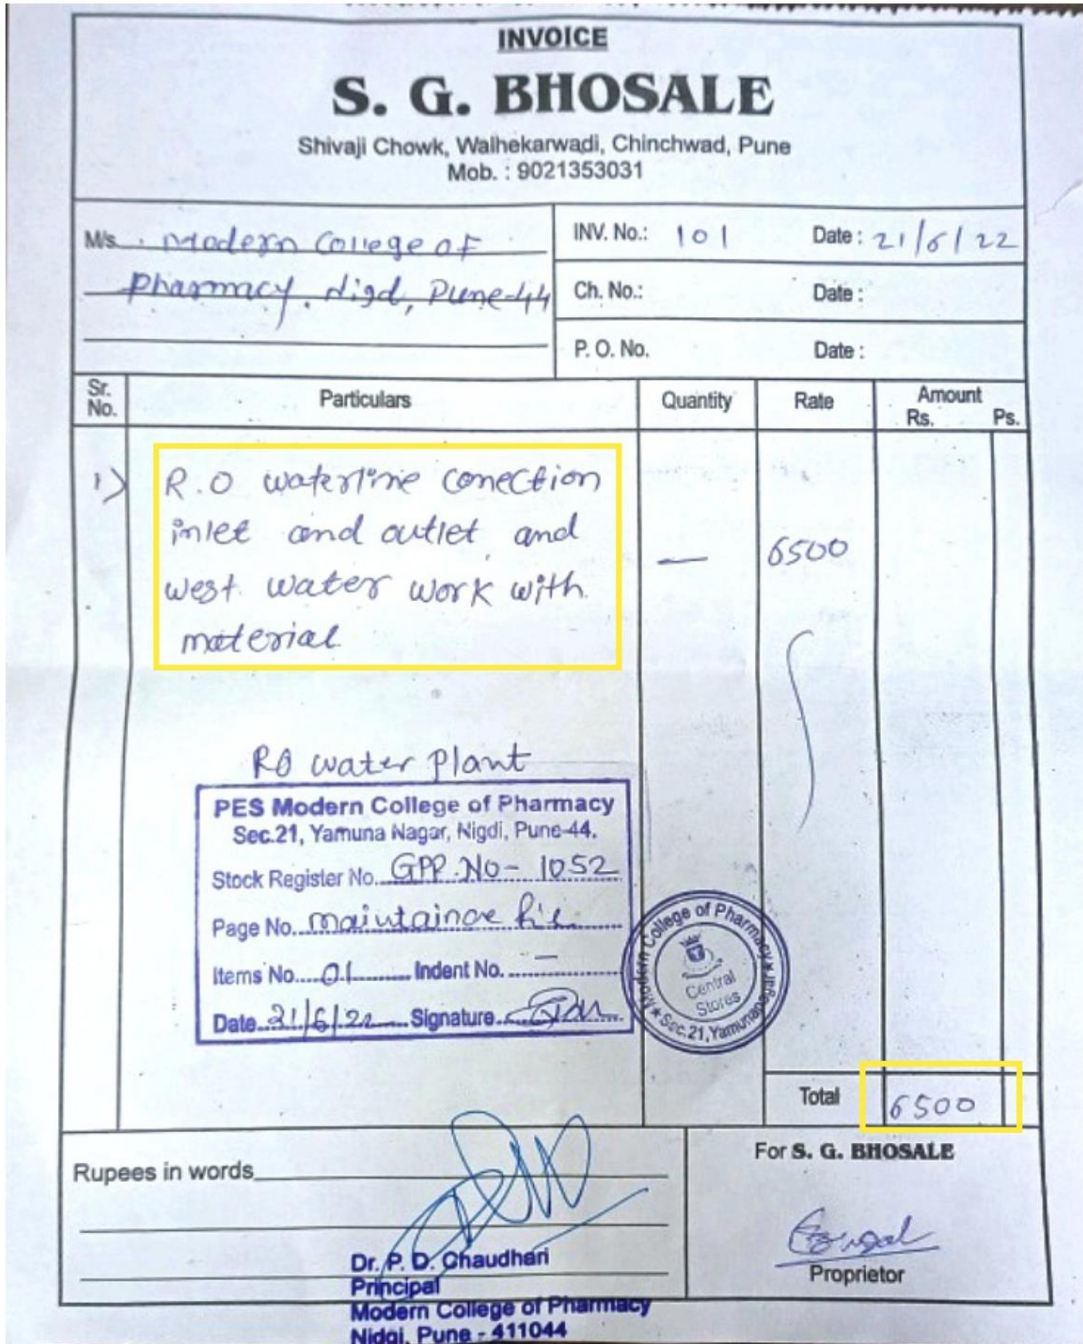 INVOICE
S. G. BHOSALE
Shivaji Chowk, Walhekarwadi, Chinchwad, Pune
Mob. : 9021353031
M/s. Modern College of
Pharmacy, Nigd, Pune-44
INV. No.: 101 Date : 21/6/22
Ch. No.: Date :
P. O. No. Date :
Sr. No. Particulars Quantity Rate Amount Rs. Ps.
1) R.O waterline conection
inlet and outlet and
west water work with
material
— 6500
RO water plant
PES Modern College of Pharmacy
Sec.21, Yamuna Nagar, Nigdi, Pune-44.
Stock Register No. GPP.No- 1052
Page No. maintaince file
Items No. 01 Indent No. —
Date 21/6/22 Signature
Modern College of Pharmacy
Sec.21, Yamunanagar
Central
Stores
Total 6500
Rupees in words
For S. G. BHOSALE
Proprietor
Dr. P. D. Chaudhari
Principal
Modern College of Pharmacy
Nidgi, Pune - 411044